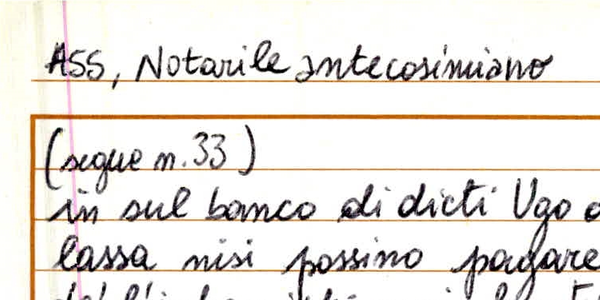 ASS, Notarile antecosimiano
(segue n. 33)
in sul banco di dicti Ugo
lassa nisi possino pagare